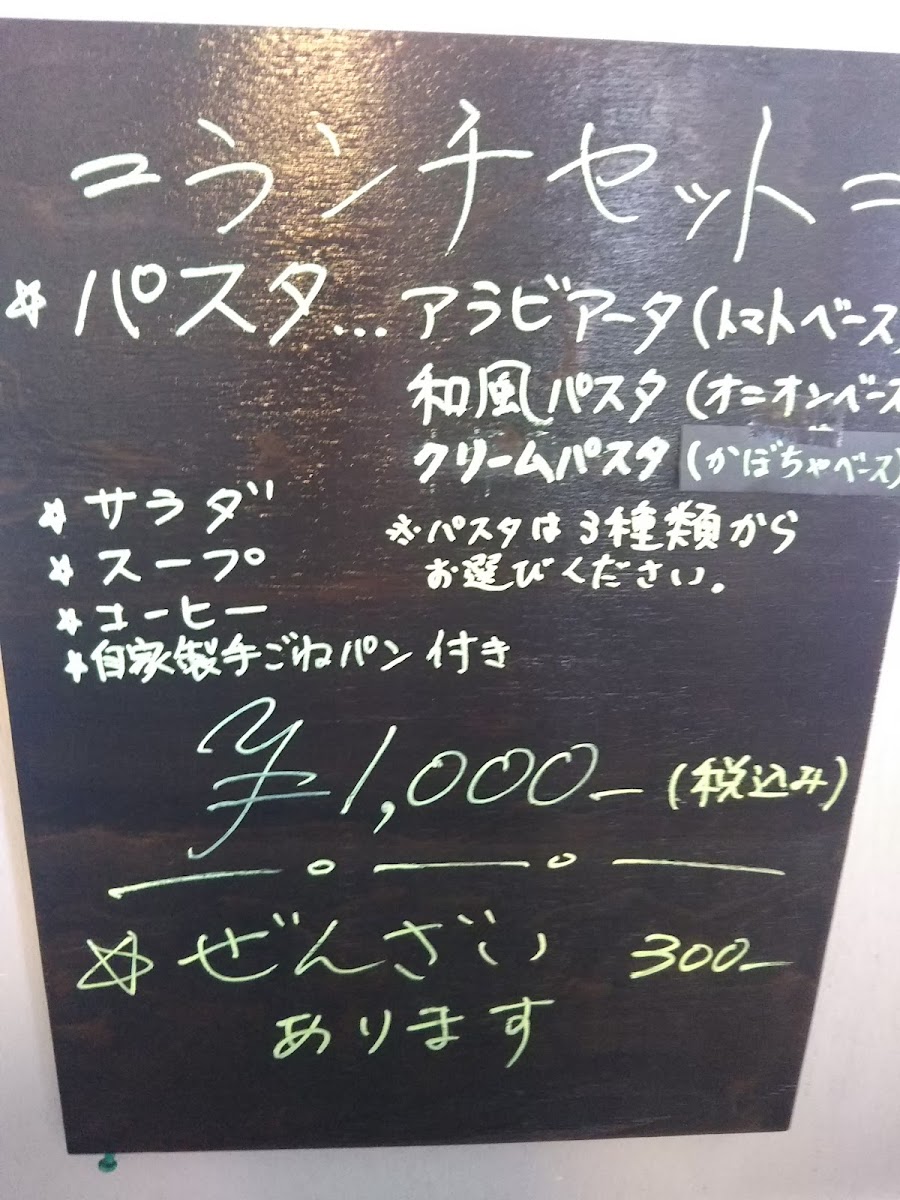 =ランチセット=
☆パスタ…アラビアータ(トマトベース)
和風パスタ(オニオンベース
クリームパスタ(かぼちゃベース)
☆サラダ
☆スープ
☆コーヒー
☆自家製手ごねパン付き
※パスタは3種類から
お選びください。
¥1,000-(税込み)
☆ぜんざい 300-
あります